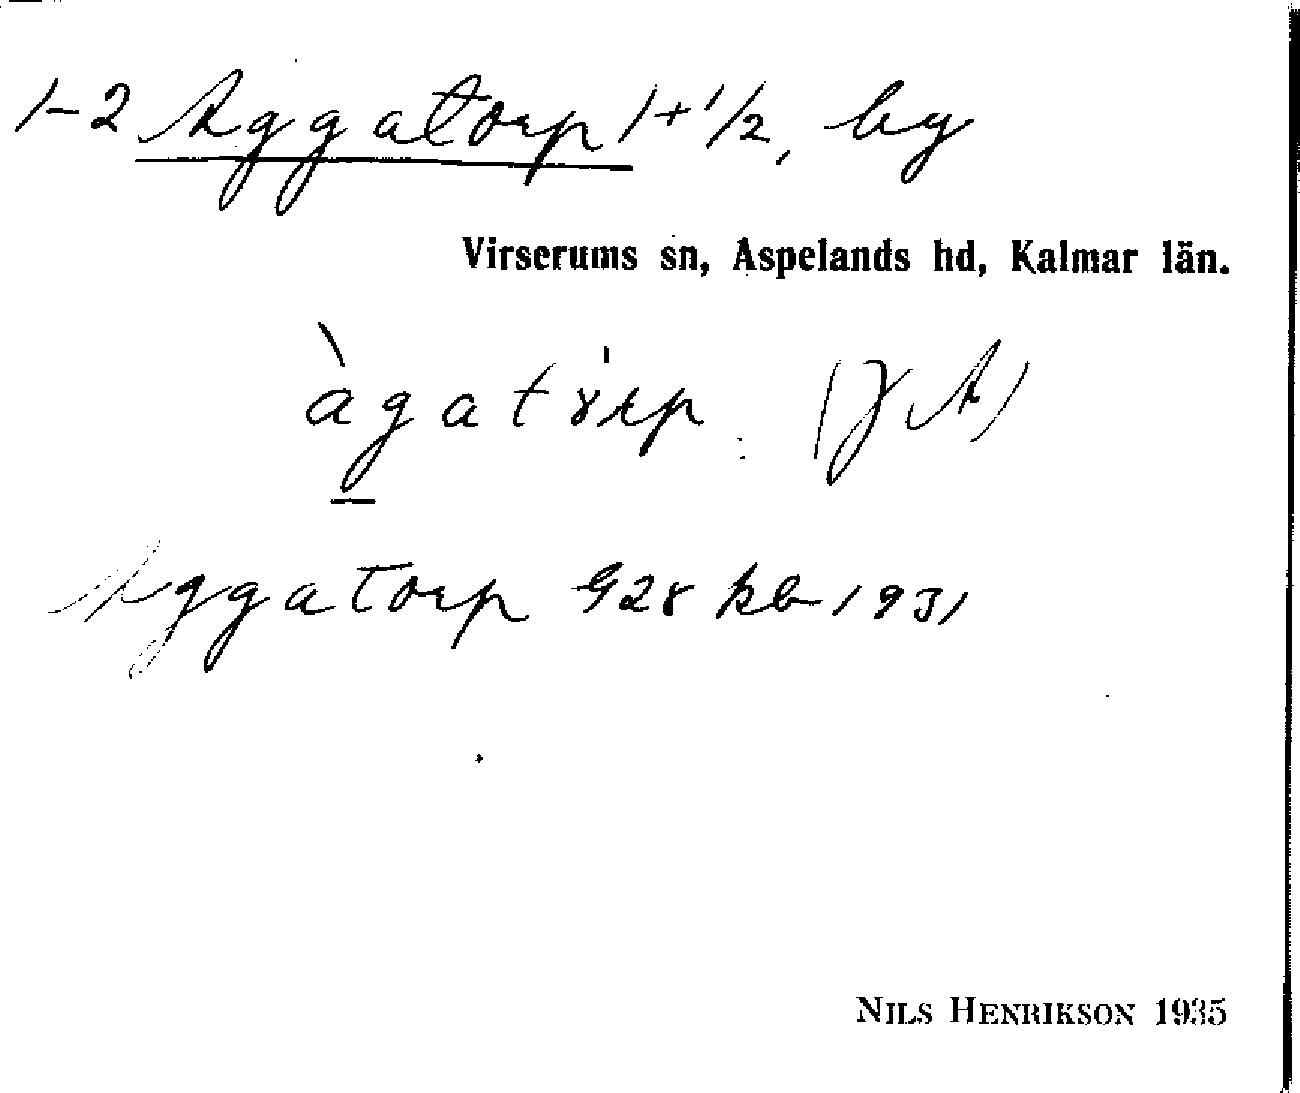 1-2 Aggatorp 1+1/2, by
Virserums sn, Aspelands hd, Kalmar län.
àgatɤrp (JA)
Aggatorp G28 kb 1931
NILS HENRIKSON 1935